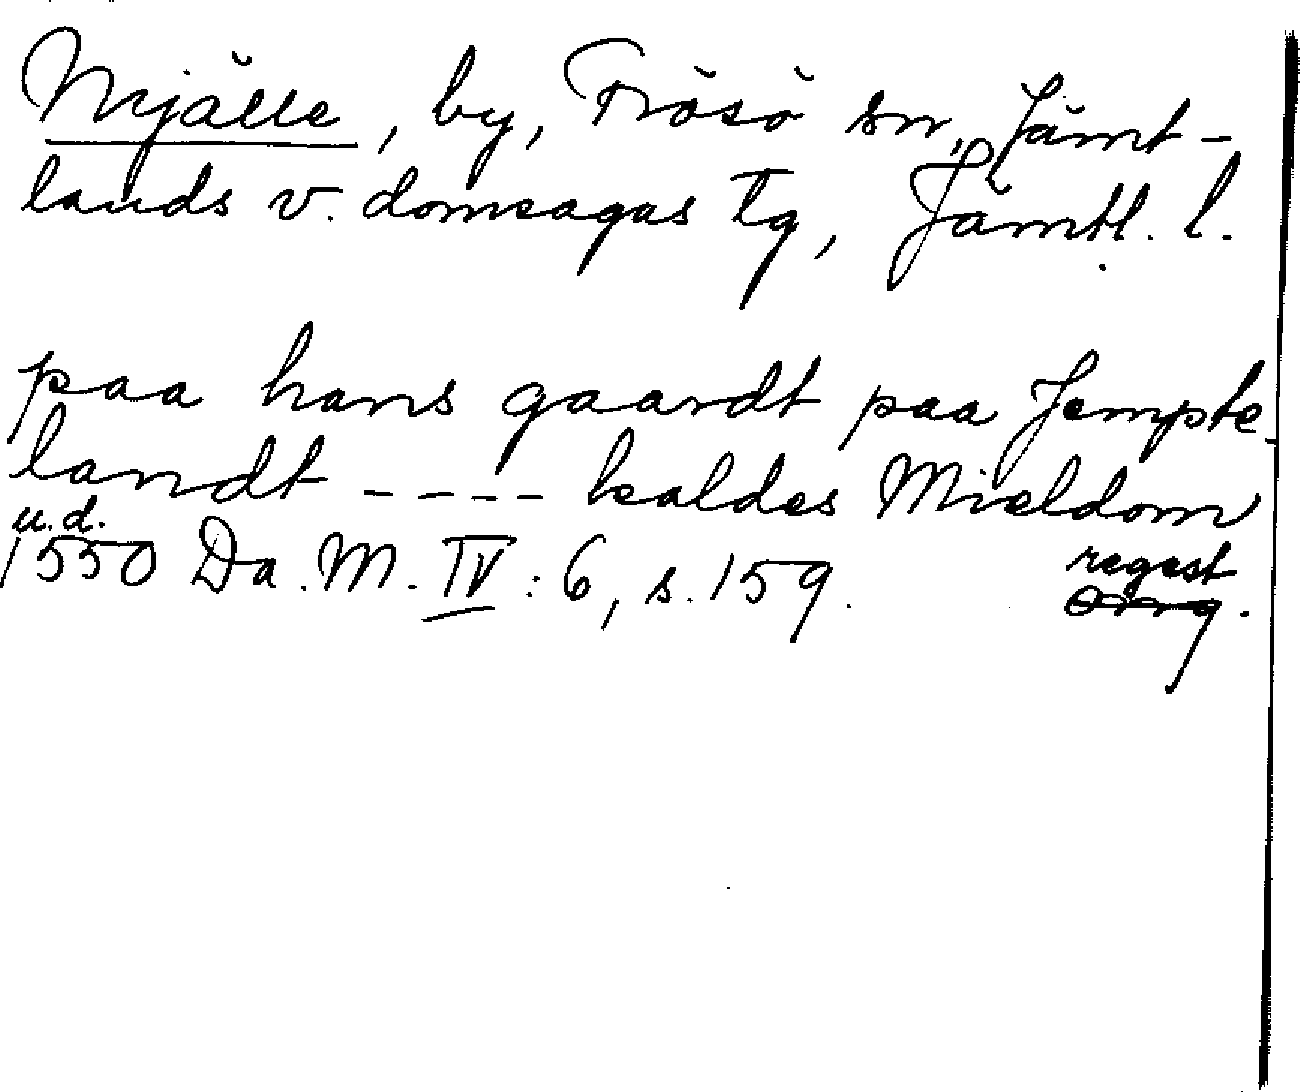 Mjälle, by, Frösö sn, Jämt-
lands v. domsagas tg, Jämtl. l.
paa hans gaardt paa Jempte
landt ---- kaldes Mieldom
u.d.
1550 Da. M. IV : 6, s. 159. regest